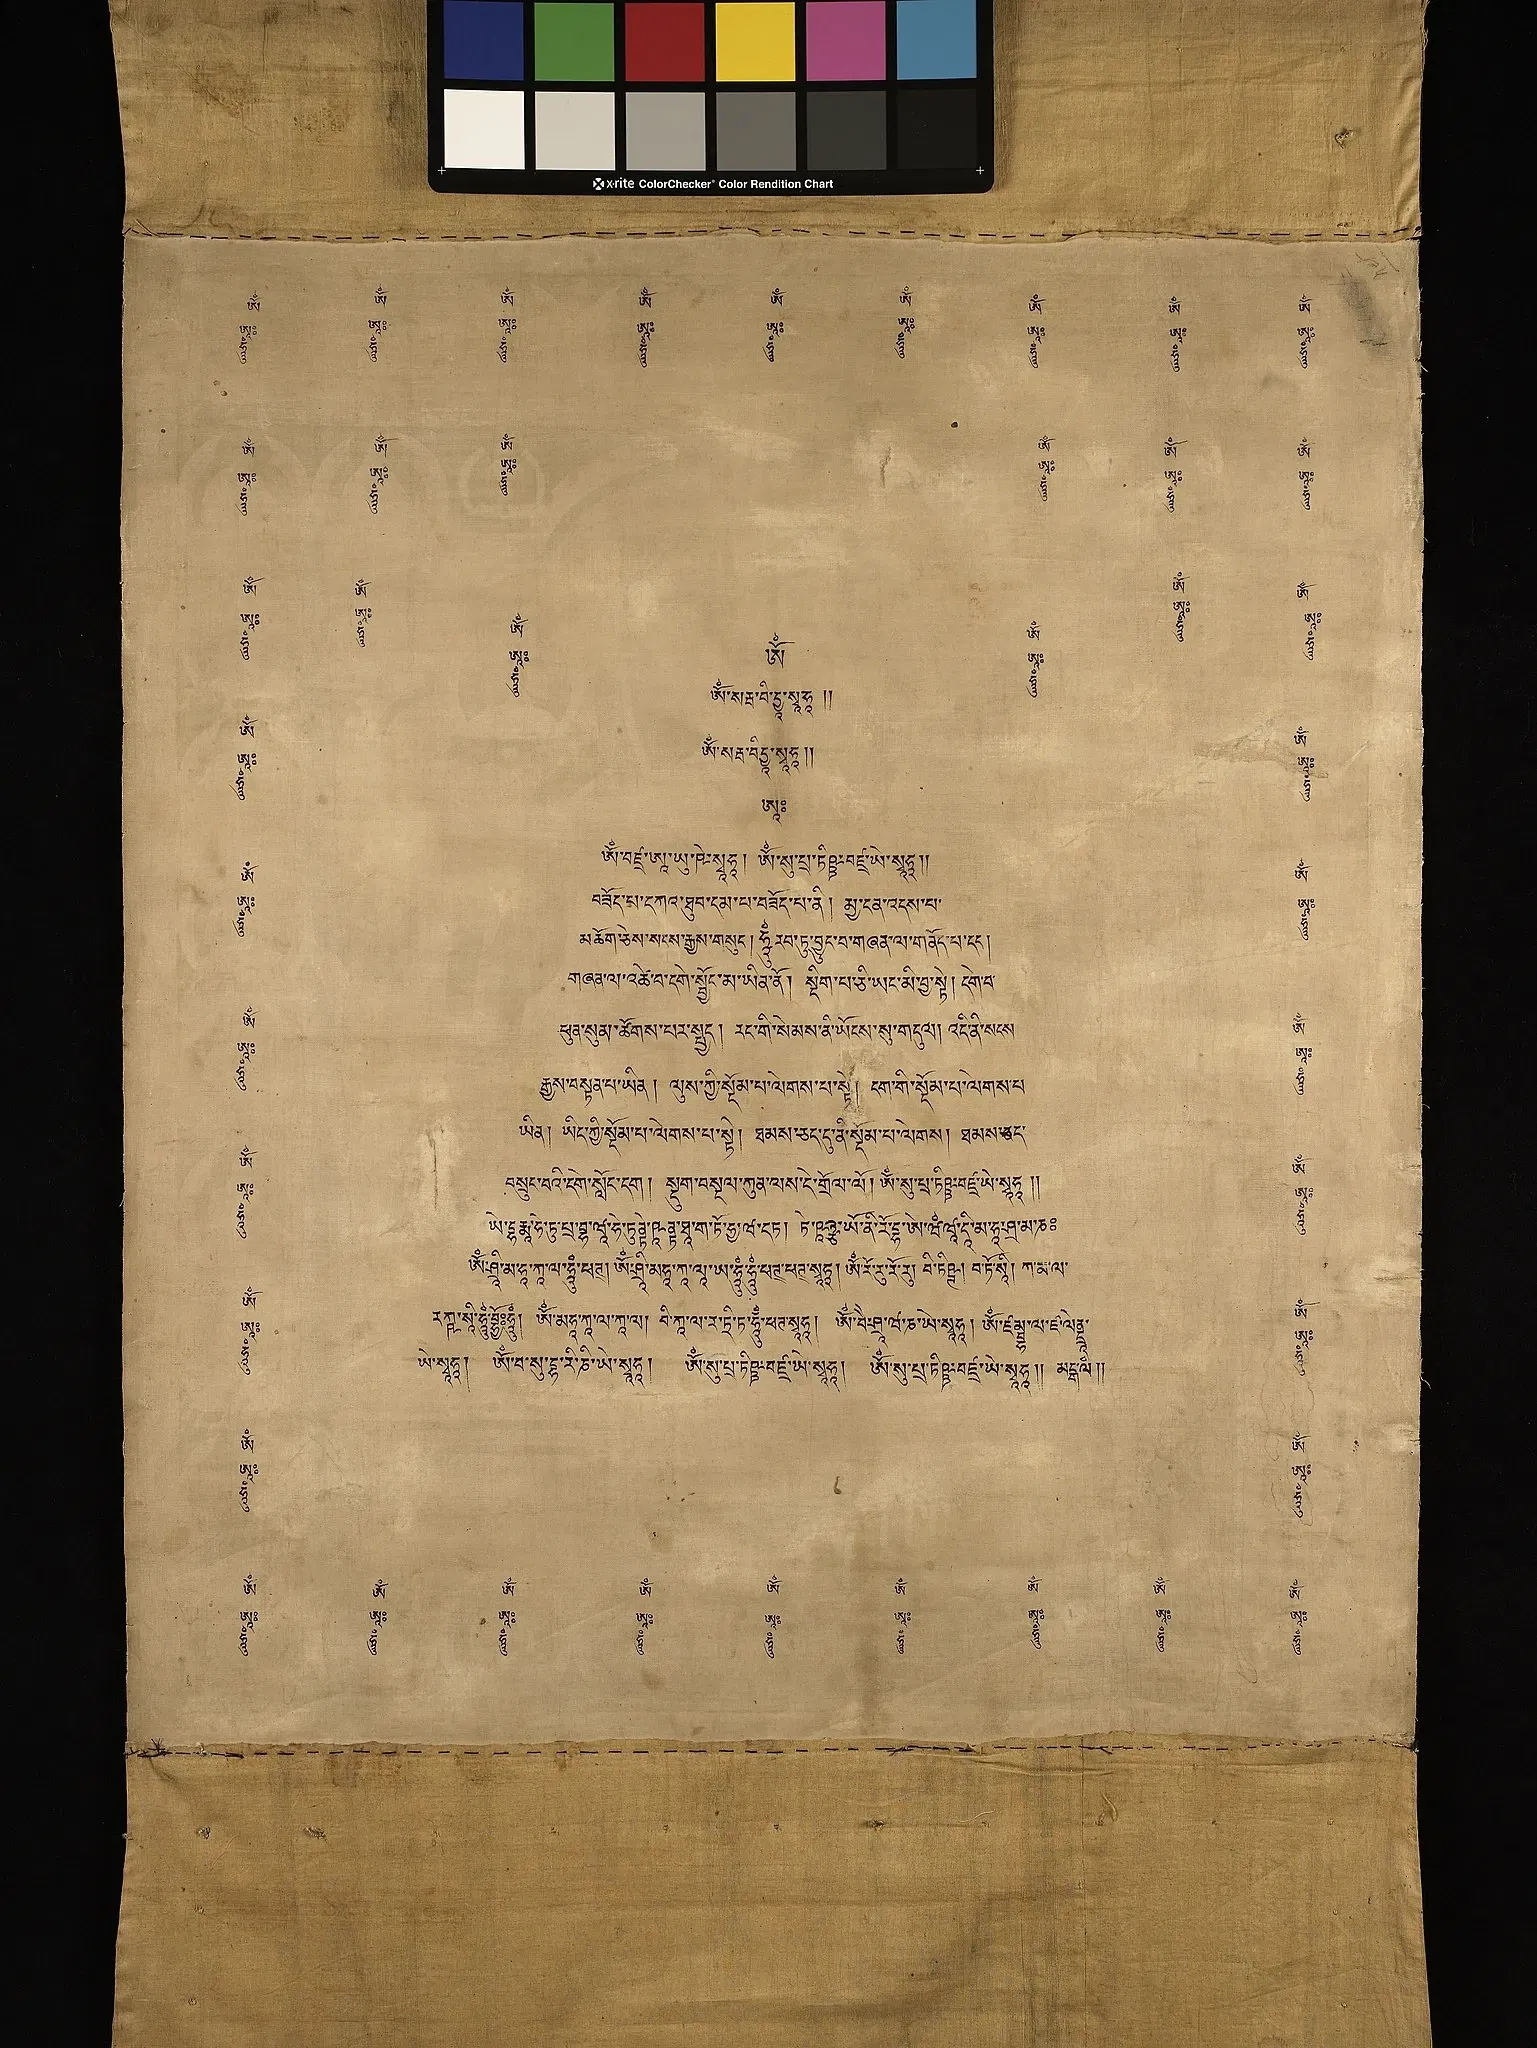 x-rite ColorChecker® Color Rendition Chart
ཨོཾ ཨོཾ ཨོཾ ཨོཾ ཨོཾ ཨོཾ ཨོཾ ཨོཾ ཨོཾ
ཨཱཿ ཨཱཿ ཨཱཿ ཨཱཿ ཨཱཿ ཨཱཿ ཨཱཿ ཨཱཿ ཨཱཿ
ཧཱུྃ ཧཱུྃ ཧཱུྃ ཧཱུྃ ཧཱུྃ ཧཱུྃ ཧཱུྃ ཧཱུྃ ཧཱུྃ
ཨོཾ ཨོཾ ཨོཾ ཨོཾ ཨོཾ ཨོཾ
ཨཱཿ ཨཱཿ ཨཱཿ ཨཱཿ ཨཱཿ ཨཱཿ
ཧཱུྃ ཧཱུྃ ཧཱུྃ ཧཱུྃ ཧཱུྃ ཧཱུྃ
ཨོཾ ཨོཾ ཨོཾ ཨོཾ ཨོཾ ཨོཾ
ཨཱཿ ཨཱཿ ཨཱཿ ཨཱཿ ཨཱཿ ཨཱཿ
ཧཱུྃ ཧཱུྃ ཧཱུྃ ཧཱུྃ ཧཱུྃ ཧཱུྃ
ཨོཾ
ཨོཾ་སརྦ་བི་དྱཱ་སྭཱཧཱ །།
ཨོཾ་སརྦ་བིདྱཱ་སྭཱཧཱ །།
ཨཱཿ
ཨོཾ་བཛྲ་ཨཱ་ཡུ་ཥེ་སྭཱཧཱ། ཨོཾ་སུ་པྲ་ཏིཥྛ་བཛྲ་ཡེ་སྭཱཧཱ།།
བཟོད་པ་དཀའ་ཐུབ་དམ་པ་བཟོད་པ་ནི། མྱ་ངན་འདས་པ་
མཆོག་ཅེས་སངས་རྒྱས་གསུང། ཧཱུྃ་རབ་ཏུ་བྱུང་བ་གཞན་ལ་གནོད་པ་དང།
གཞན་ལ་འཚེ་བ་དགེ་སྦྱོང་མ་ཡིན་ནོ། སྡིག་པ་ཅི་ཡང་མི་བྱ་སྟེ། དགེ་བ་
ཕུན་སུམ་ཚོགས་པར་སྤྱད། རང་གི་སེམས་ནི་ཡོངས་སུ་གདུལ། འདི་ནི་སངས་
རྒྱས་བསྟན་པ་ཡིན། ལུས་ཀྱི་སྡོམ་པ་ལེགས་པ་སྟེ། ངག་གི་སྡོམ་པ་ལེགས་པ
ཡིན། ཡིད་ཀྱི་སྡོམ་པ་ལེགས་པ་སྟེ། ཐམས་ཅད་དུ་ནི་སྡོམ་པ་ལེགས། ཐམས་ཅད་
བསྲུང་བའི་དགེ་སློང་དག། སྡུག་བསྔལ་ཀུན་ལས་དེ་གྲོལ་ལོ། ཨོཾ་སུ་པྲ་ཏིཥྛ་བཛྲ་ཡེ་སྭཱཧཱ །།
ཨོཾ་ཤྲཱི་མ་ཧཱ་ཀཱ་ལ་ཧཱུྃ་ཕཊ། ཨོཾ་ཤྲཱི་མཧཱ་ཀཱ་ལཱ་ཡ་ཧཱུྃ་ཧཱུྃ་ཕཊ་ཕཊ་སྭཱཧཱ། ཨོཾ་རོ་རུ་རོ་རུ། བི་ཏིཥྛ། བ་ཏོ་སི། ཀ་མ་ལ་
ཨོཾ་མཧཱ་ཀཱ་ལ་ཀཱ་ལ། བི་ཀཱ་ལ་ར་ཏྲི་ཏ་ཧཱུྃ་ཕཊ་སྭཱཧཱ། ཨོཾ་བཻ་ཤྲཱ་ཝ་ཎ་ཡེ་སྭཱཧཱ། ཨོཾ་ཛམྦྷ་ལ་ཛ་ལེནྡྲ་
ཡེ་སྭཱཧཱ། ཨོཾ་བ་སུ་དྷ་རི་ཎི་ཡེ་སྭཱཧཱ། ཨོཾ་སུ་པྲ་ཏིཥྛ་བཛྲ་ཡེ་སྭཱཧཱ། ཨོཾ་སུ་པྲ་ཏིཥྛ་བཛྲ་ཡེ་སྭཱཧཱ།། མངྒ་ལཾ།།
ཨོཾ ཨོཾ
ཨཱཿ ཨཱཿ
ཧཱུྃ ཧཱུྃ
ཨོཾ ཨོཾ
ཨཱཿ ཨཱཿ
ཧཱུྃ ཧཱུྃ
ཨོཾ ཨོཾ
ཨཱཿ ཨཱཿ
ཧཱུྃ ཧཱུྃ
ཨོཾ ཨོཾ
ཨཱཿ ཨཱཿ
ཧཱུྃ ཧཱུྃ
ཨོཾ ཨོཾ
ཨཱཿ ཨཱཿ
ཧཱུྃ ཧཱུྃ
ཨོཾ ཨོཾ
ཨཱཿ ཨཱཿ
ཧཱུྃ ཧཱུྃ
ཨོཾ ཨོཾ ཨོཾ ཨོཾ ཨོཾ ཨོཾ ཨོཾ ཨོཾ ཨོཾ
ཨཱཿ ཨཱཿ ཨཱཿ ཨཱཿ ཨཱཿ ཨཱཿ ཨཱཿ ཨཱཿ ཨཱཿ
ཧཱུྃ ཧཱུྃ ཧཱུྃ ཧཱུྃ ཧཱུྃ ཧཱུྃ ཧཱུྃ ཧཱུྃ ཧཱུྃ